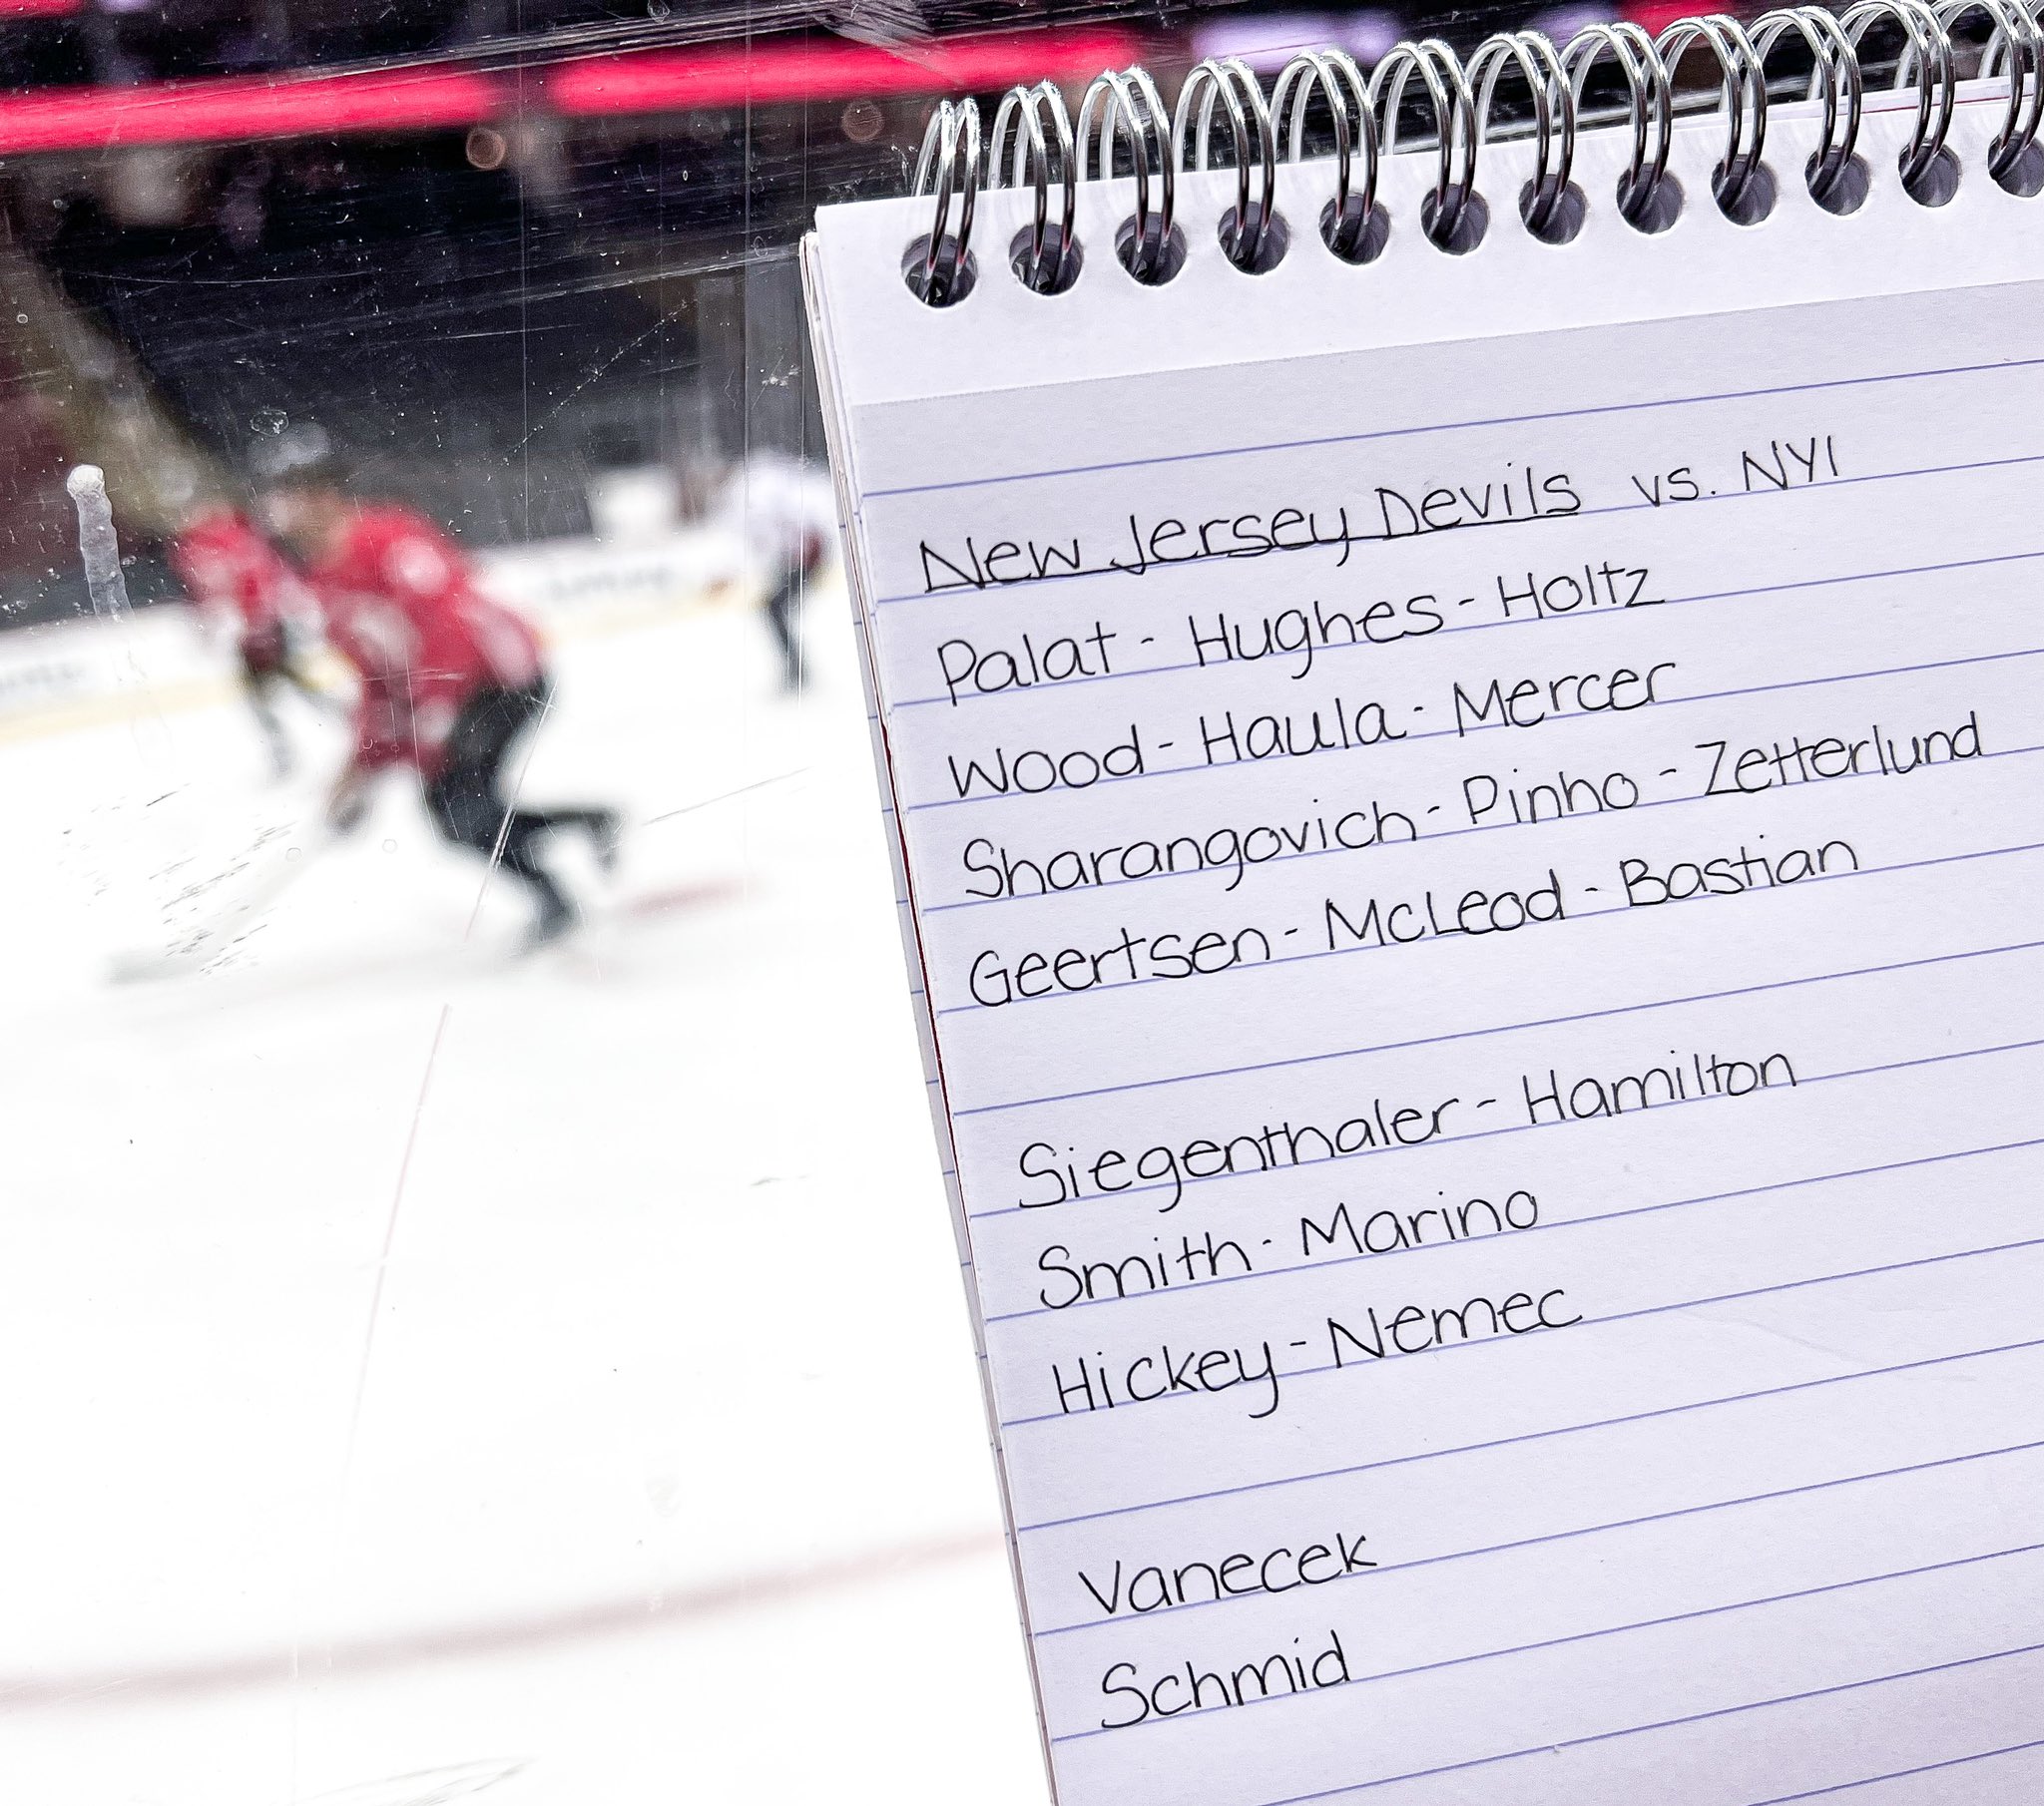 New Jersey Devils vs. NYI
Palat - Hughes - Holtz
Wood - Haula - Mercer
Sharangovich - Pinho - Zetterlund
Geertsen - McLeod - Bastian
Siegenthaler - Hamilton
Smith - Marino
Hickey - Nemec
Vanecek
Schmid